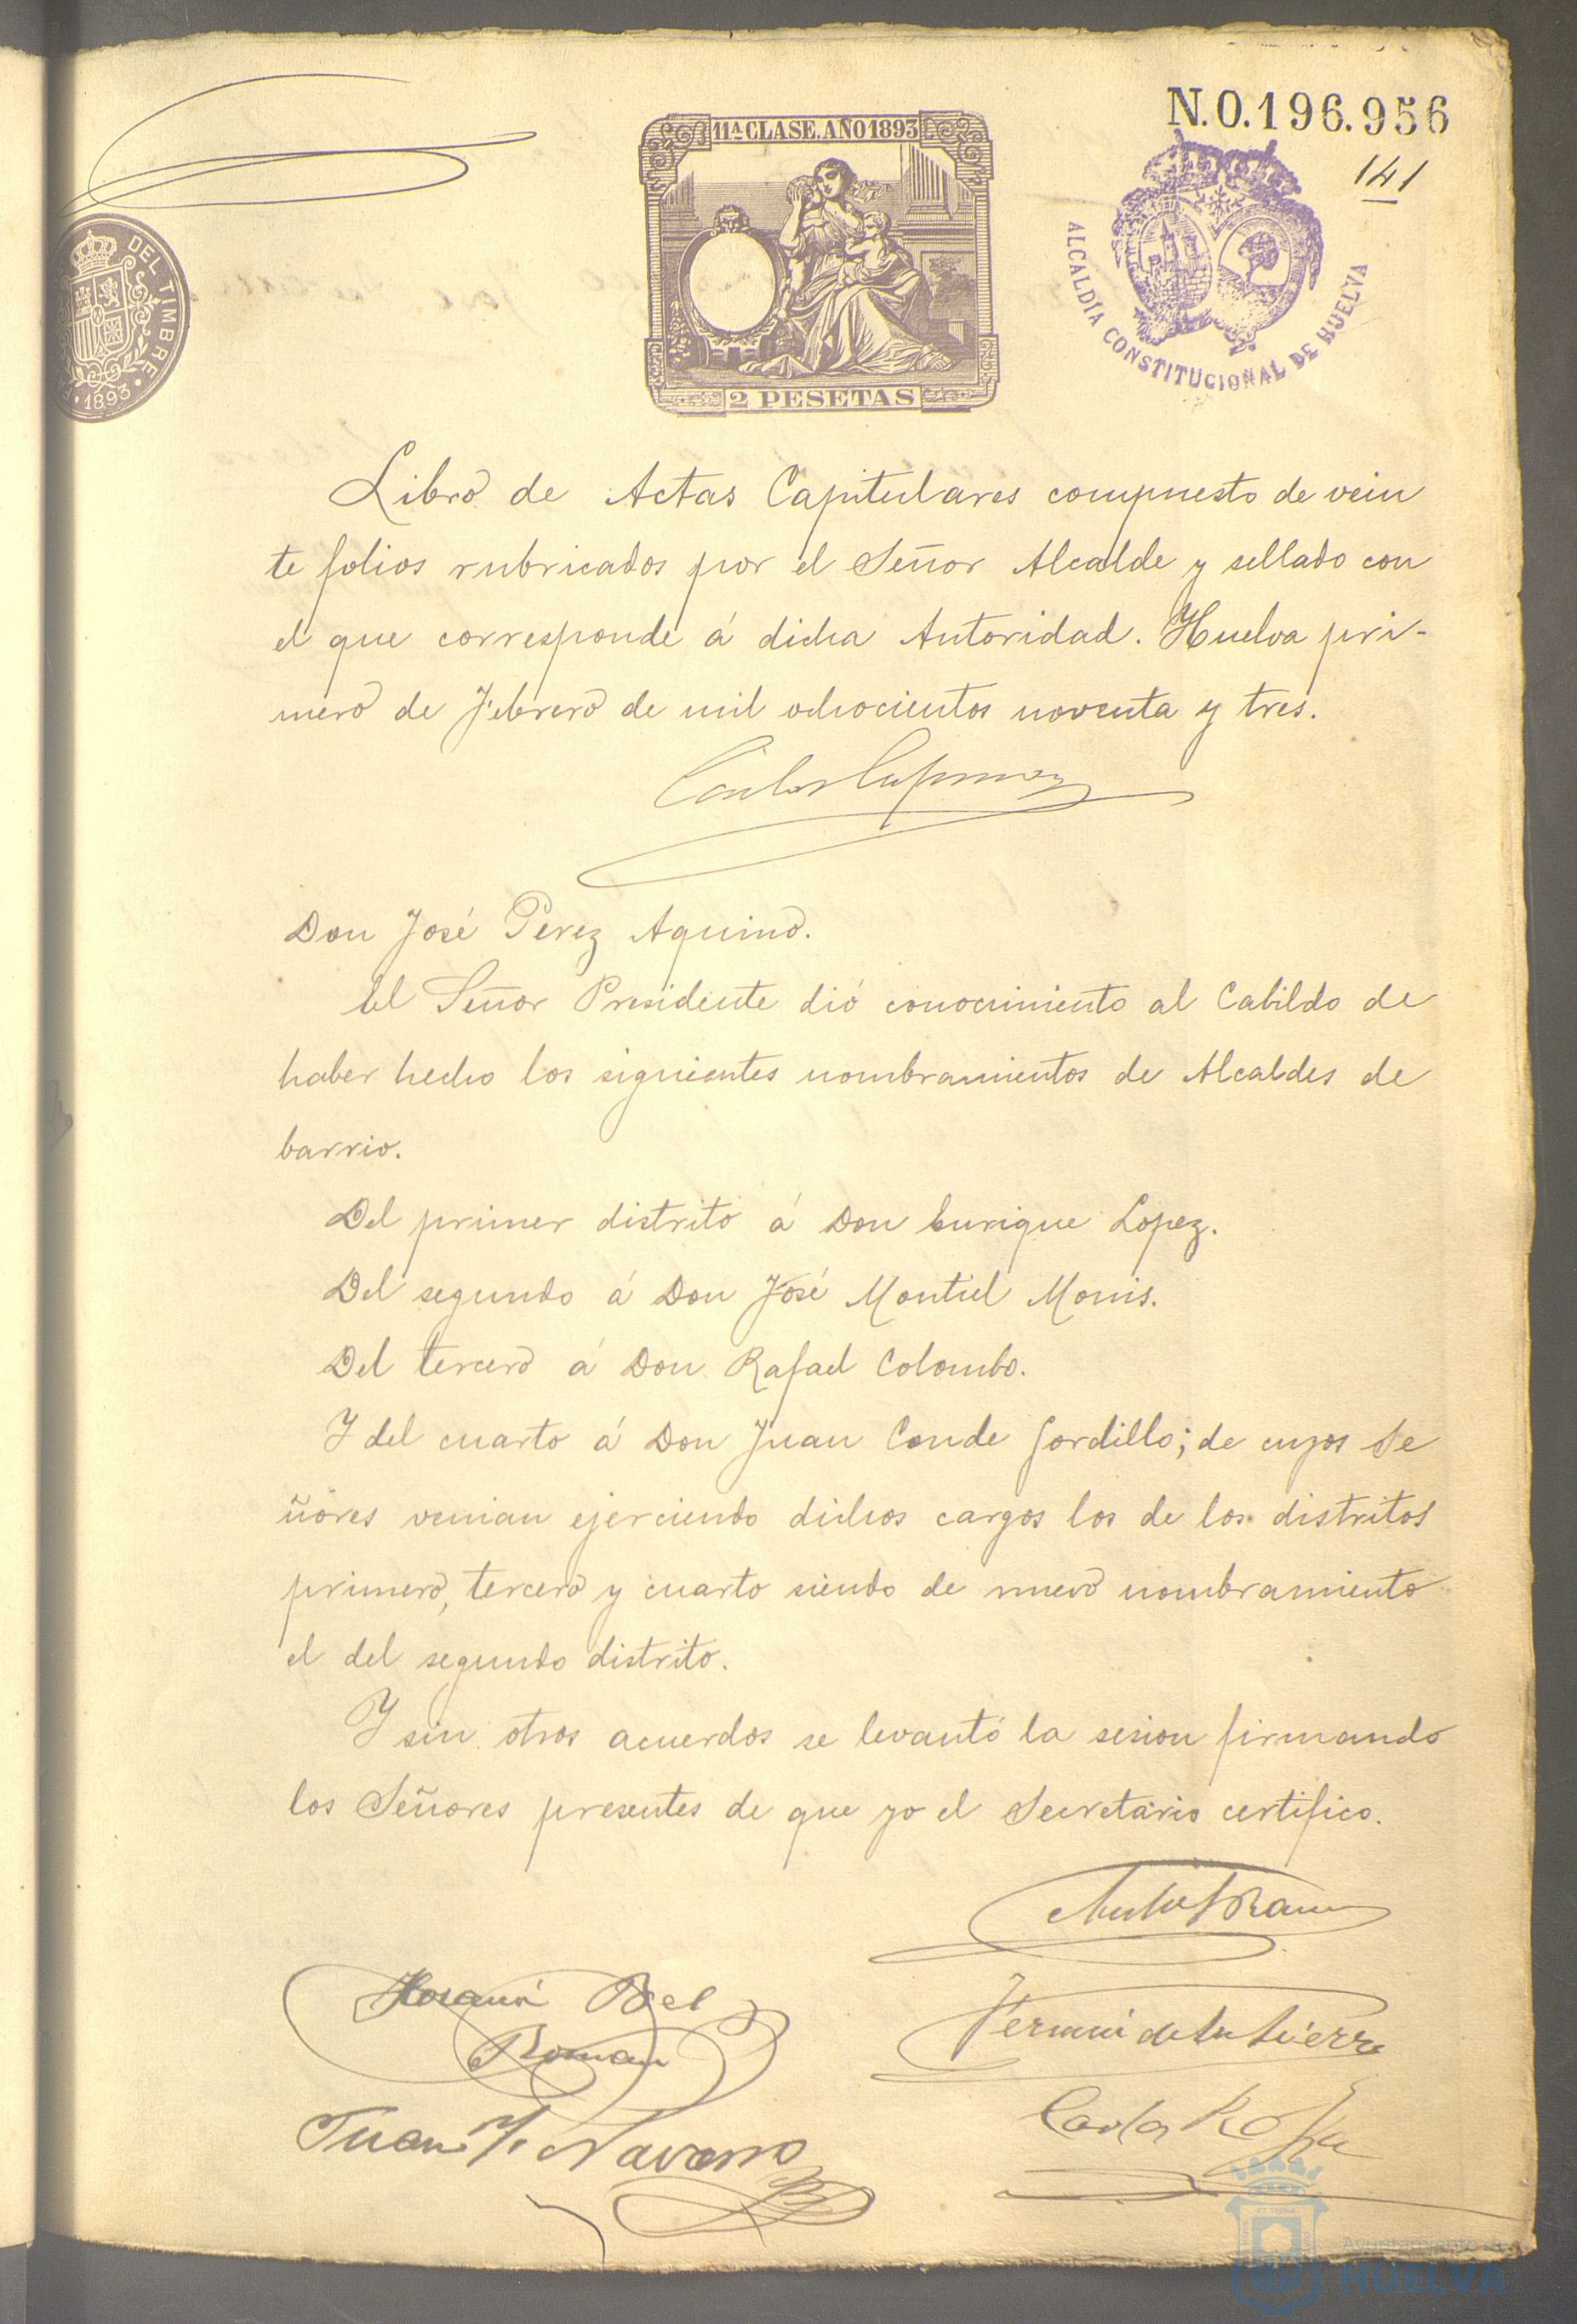 N.0.196.956
141
11ª CLASE. AÑO 1893
2 PESETAS
DEL TIMBRE
1893
ALCALDÍA CONSTITUCIONAL DE HUELVA
Libro de Actas Capitulares compuesto de vein
te folios rubricados por el Señor Alcalde y sellado con
el que corresponde á dicha Autoridad. Huelva pri-
mero de Febrero de mil ochocientos noventa y tres.
Don José Perez Aquino.
El Señor Presidente dió conocimiento al Cabildo de
haber hecho los siguientes nombramientos de Alcaldes de
barrio.
Del primer distrito á Don Enrique Lopez.
Del segundo á Don José Montiel Monis.
Del tercero á Don Rafael Colombo.
Y del cuarto á Don Juan Conde Gordillo; de cuyos Se
ñores venian ejerciendo dichos cargos los de los distritos
primero, tercero y cuarto siendo de nuevo nombramiento
el del segundo distrito.
Y sin otros acuerdos se levantó la sesion firmando
los Señores presentes de que yo el Secretario certifico.
Bel
Roman
Juan F. Navarro
Ayuntamiento de
HUELVA